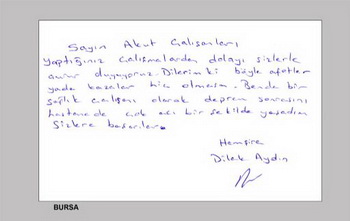 Sayın Akut Çalışanları
yaptığınız çalışmalardan dolayı sizlerle
gurur duyuyoruz. Dilerim ki böyle afetler
yada kazalar hiç olmasın. Bende bir
sağlık çalışanı olarak deprem sonrasını
hastanede çok acı bir şekilde yaşadım
Sizlere başarılar.
Hemşire
Dilek Aydın
BURSA